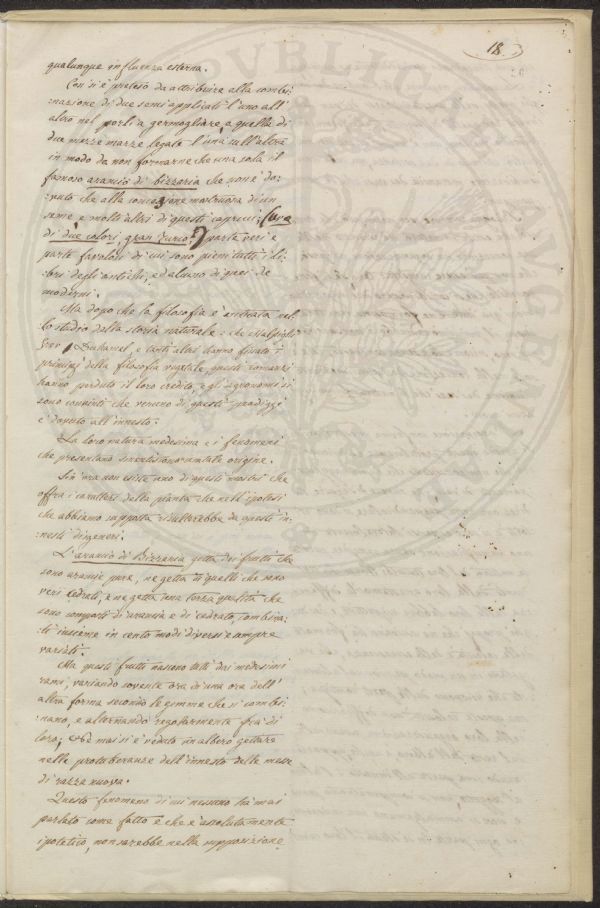 18.
qualunque influenza esterna.
Così si è preteso da attribuire alla combi:
:nazione di due semi applicati l'uno all'
altro nel porli a germogliare, a quella di
due mezze mazze legate l'una sull'altra
in modo da non formarne che una sola il
famoso arancio di bizzaria che non è do:
:vuto che alla concezione mostruosa di un
seme e molti altri di questi capricci, (uva
di due colori, gran Turco) parte veri e
parte favolosi di cui sono pieni tutti i li:
:bri degli antichi, ed alcuno di quei de
moderni.
Ma dopo che la filosofia è entrata nel
lo studio della storia naturale e che Malpighi
Grev, Duhamel, e tanti altri hanno fissato i
principj della filosofia vegetale, questi romanzi
hanno perduto il loro credito, e gli agronomi si
sono convinti che veruno di questi
è dovuto all'innesto.
La loro natura medesima e i fenomeni
che presentano smentiscono una tale origine.
Sin'ora non esiste uno di questi mostri che
offra i caratteri della pianta che nell'ipotesi
che abbiamo supposta risulterebbe da questi in:
:nesti di generi.
L'arancio di Bizzaria getta dei frutti che
sono arancie pure, ne getta di quelli che sono
veri cedrati, e ne getta una terza qualità che
sono composti di arancia e di cedrato, combina:
:ti insieme in cento modi diversi e sempre
variati.
Ma questi frutti nascono tutti dai medesimi
rami, variando sovente ora di una ora dell'
altra forma secondo le gemme che si combi:
:nano, e alternando regolarmente fra di
loro; Nè mai si è veduto un albero gettare
nelle protuberanze dell'innesto delle messe
di razza nuova.
Questo fenomeno di cui nessuno ha mai
parlato come fatto e che è assolutamente
ipotetico, non sarebbe nella supposizione